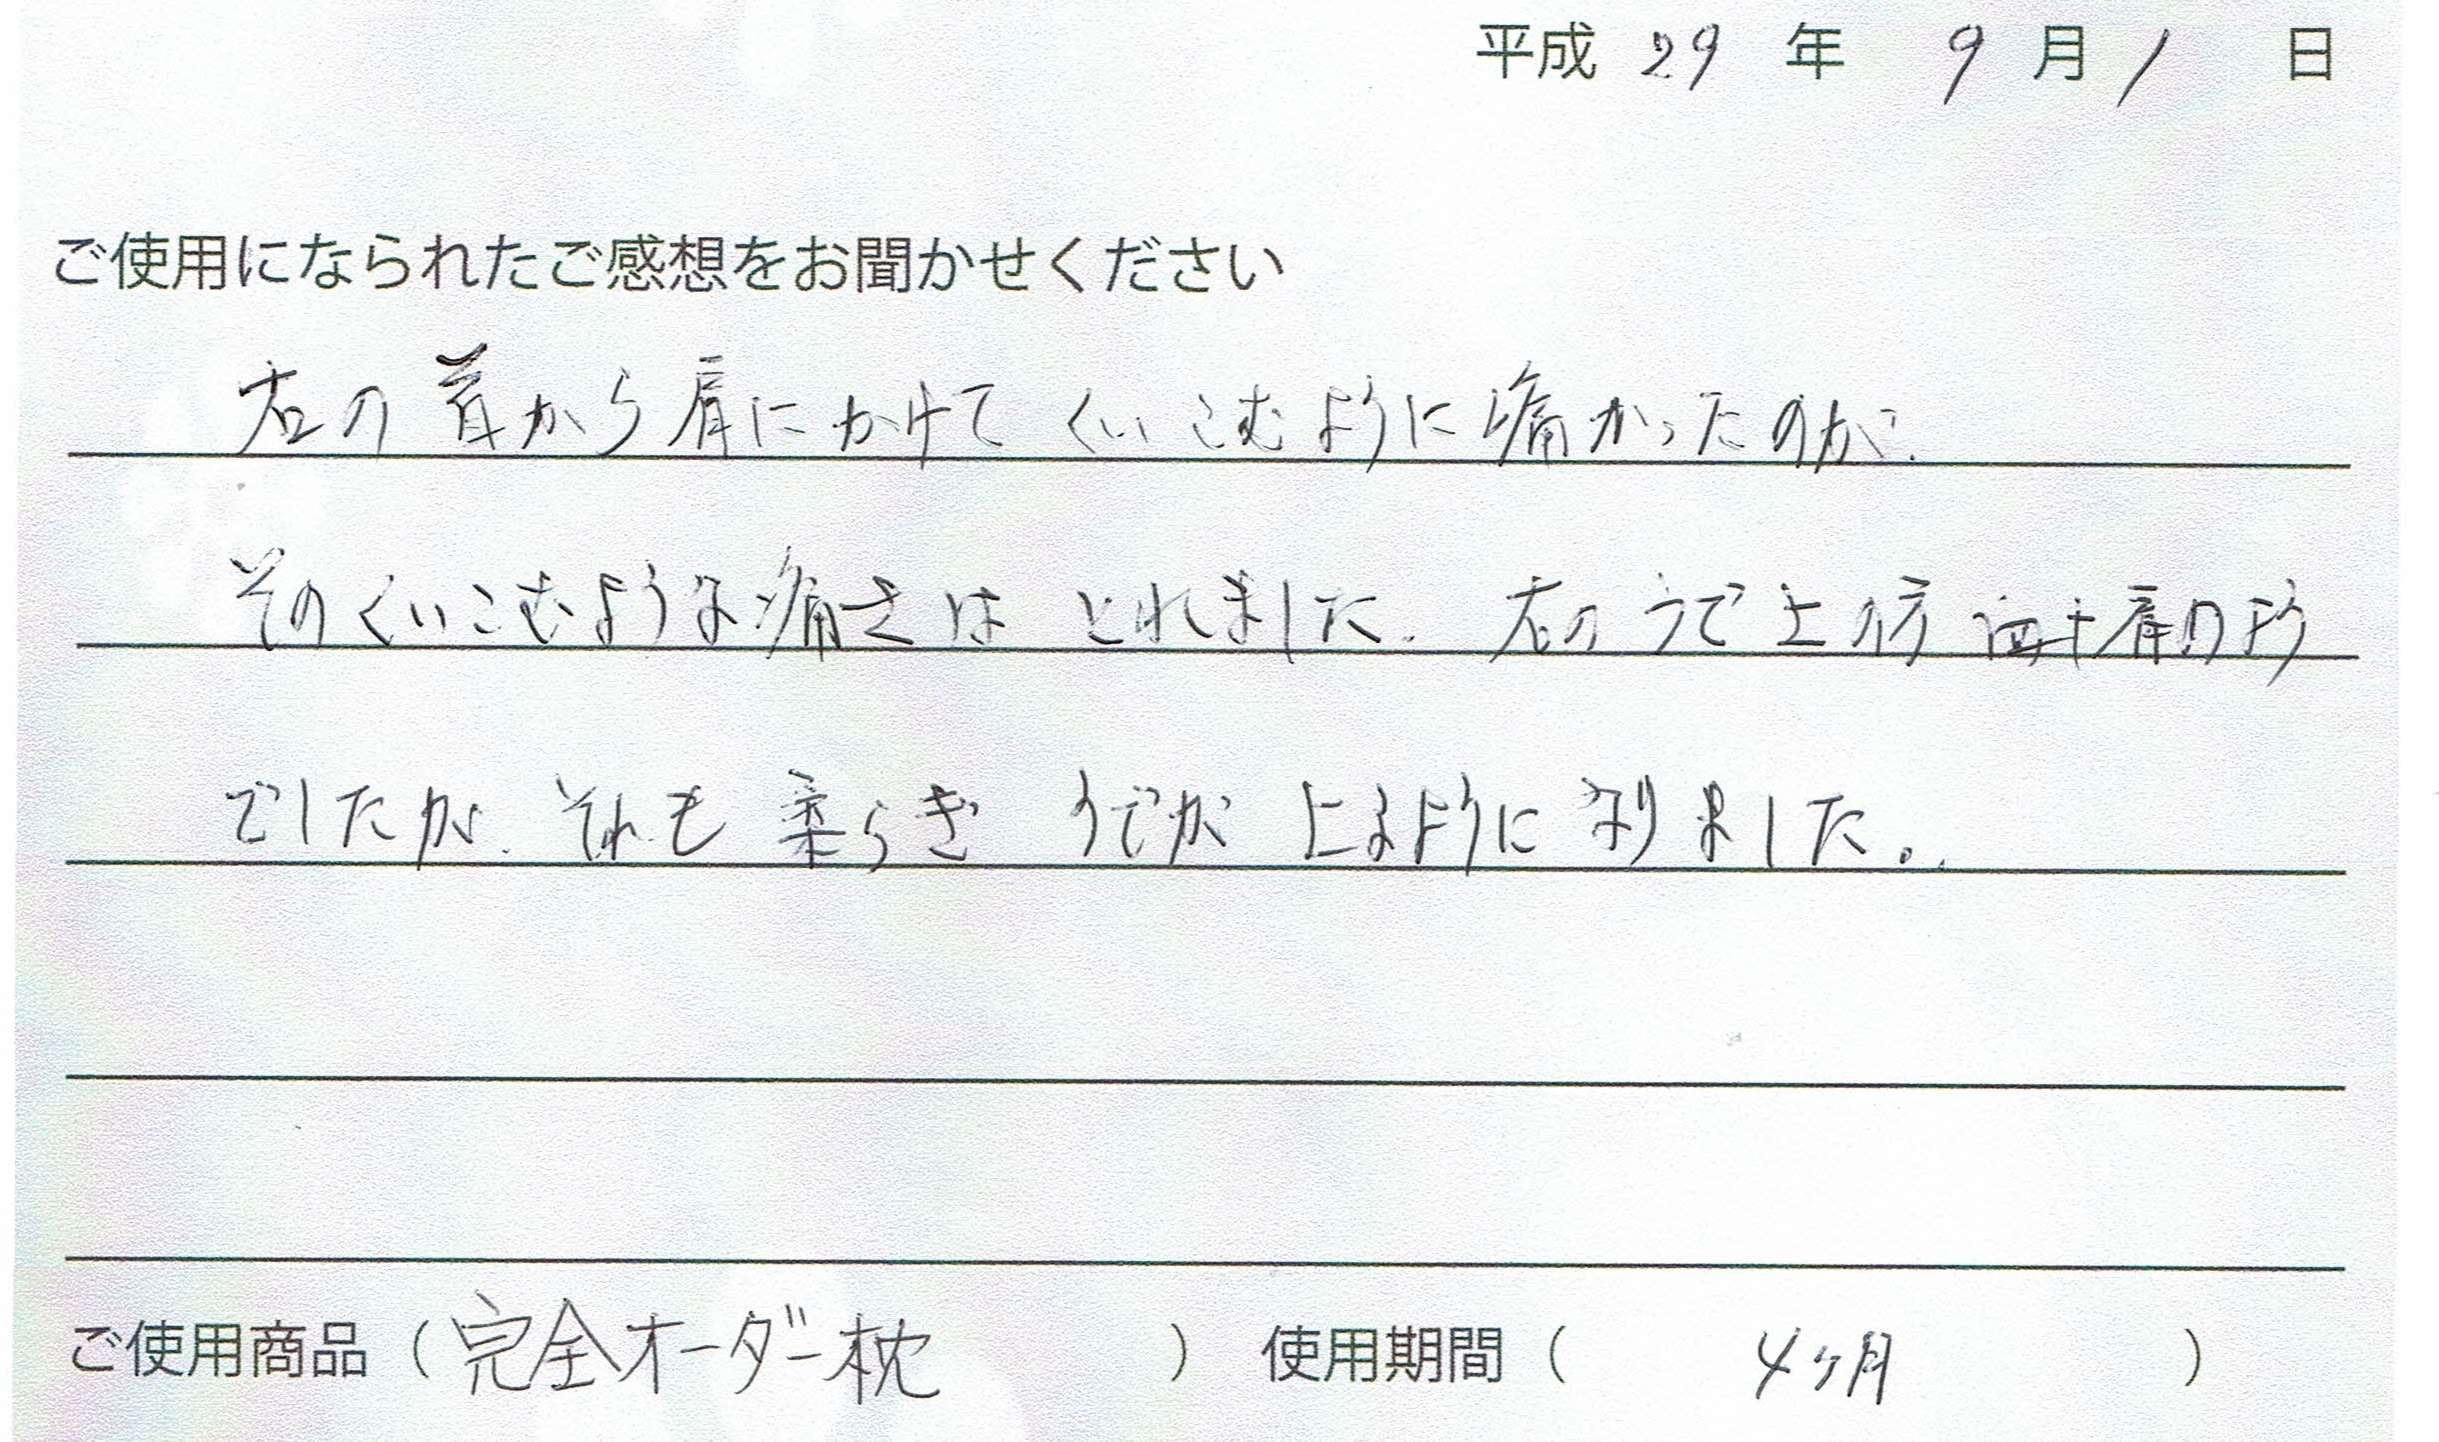 平成 29 年 9 月 1 日
ご使用になられたご感想をお聞かせください
右の首から肩にかけてくいこむように痛かったのが、
そのくいこむような痛さは とれました。右のうで上の方 四十肩の様
でしたが、それも柔らぎ うでが 上るように なりました。
ご使用商品（完全オーダー枕 ） 使用期間（ 4ヶ月 ）